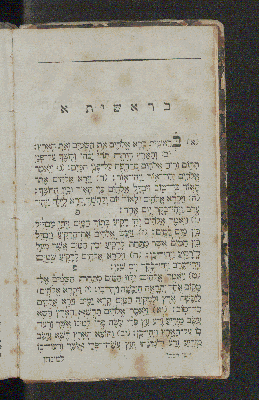 בראשית א
(א) בראשית ברא אלהים את השמים ואת הארץ:
(ב) והארץ היתה תהו ובהו וחשך על־פני
תהום ורוח אלהים מרחפת על־פני המים: (ג) ויאמר
אלהים יהי־אור ויהי־אור: (ד) וירא אלהים את־
האור כי־טוב ויבדל אלהים בין האור ובין החשך:
(ה) ויקרא אלהים לאור יום ולחשך קרא לילה ויהי־
ערב ויהי־בקר יום אחד: פ
(ו) ויאמר אלהים יהי רקיע בתוך המים ויהי מבדיל
בין מים למים: (ז) ויעש אלהים את־הרקיע ויבדל
בין המים אשר מתחת לרקיע ובין המים אשר מעל
לרקיע ויהי־כן: (ח) ויקרא אלהים לרקיע שמים
ויהי־ערב ויהי־בקר יום שני: פ
(ט) ויאמר אלהים יקוו המים מתחת השמים אל־
מקום אחד ותראה היבשה ויהי־כן: (י) ויקרא אלהים
ליבשה ארץ ולמקוה המים קרא ימים וירא אלהים
כי־טוב: (יא) ויאמר אלהים תדשא הארץ דשא
עשב מזריע זרע עץ פרי עשה פרי למינו אשר זרעו־
בו על־הארץ ויהי־כן: (יב) ותוצא הארץ דשא עשב
מזריע זרע למינהו ועץ עשה־פרי אשר זרעו־בו
למינהו